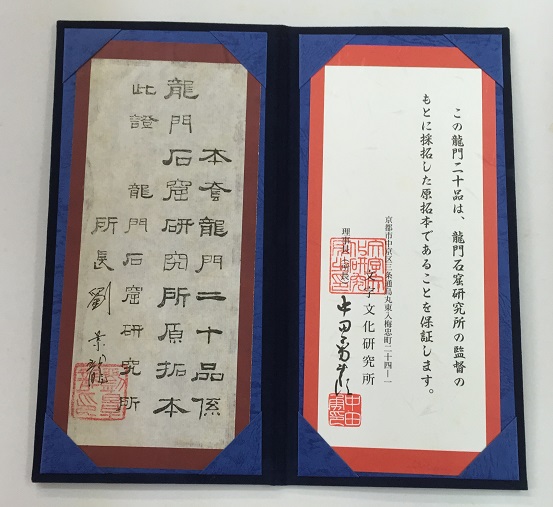 この龍門二十品は、龍門石窟研究所の監督の
もとに採拓した原拓本であることを保証します。
京都市中京区三条通烏丸東入梅忠町二十四ー一
文字文化研究所
理事長
本套龍門二十品係
龍門石窟研究所原拓本
此證
龍門石窟研究所
所長 劉景龍